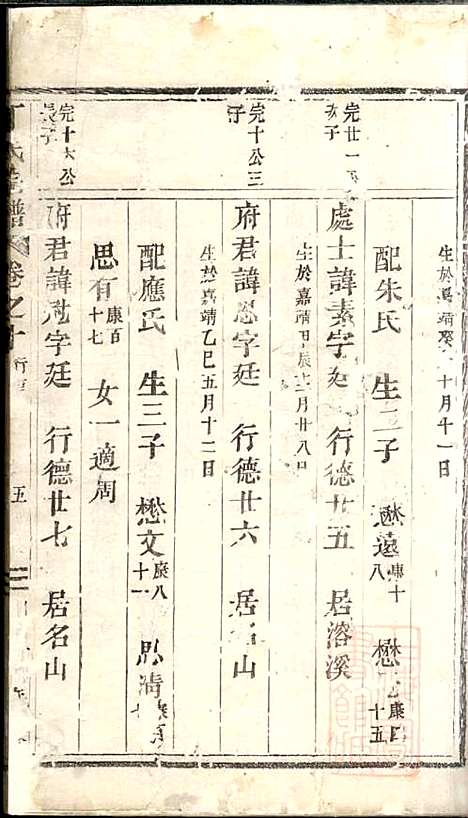 生於嘉靖癸 十月年一日
配朱氏 生二子 懋遠康十八 懋 康四十五
完廿一 子
處士諱素字 行德廿五 居溶溪
生於嘉靖甲辰 月廿八日
完十公三子
府君諱 字廷 行德廿六 居名山
生於嘉靖乙巳五月十二日
配應氏 生三子 懋文康八十一 思清
思有康百十七 女一適周
完十六公長子
府君諱 字廷 行德廿七 居名山
丁氏宗譜 卷之十 行 五